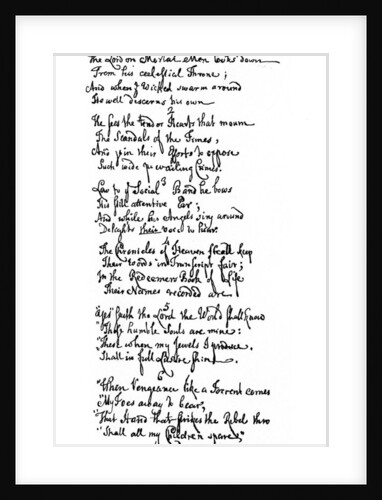 The Lord on Mortal Men looks down
From his celestial Throne;
And when ye Wicked swarm around
He well discerns his own
2
He sees the tender Hearts that mourn
The Scandals of the Times,
And join their Efforts to oppose
Such wide prevailing Crimes.
3
Low to ye Social Band he bows
His still attentive Ear;
And while his Angels sing around
Delights their voice to hear.
4
The Chronicles of Heaven shall keep
Their Words in Transcript fair;
In the Redeemers Book of Life
Their Names recorded are
5
"Yes saith the Lord the World shall know
"These humble Souls are mine:
"These when my Jewels I produce
Shall in full Lustre shine
6
"When Vengeance like a Torrent comes
"My Foes away to bear,
"That Hand that strikes the Rebel thro
"Shall all my Children spare,"